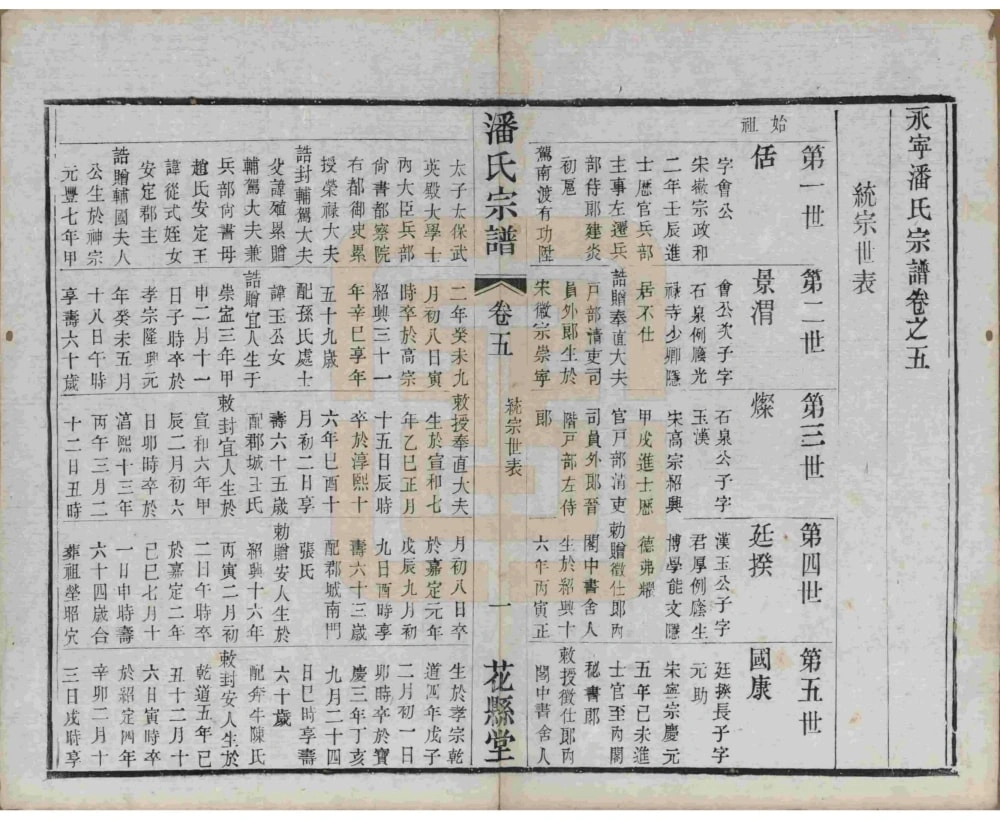 永寧潘氏宗譜卷之五
統宗世表
第一世
始祖
佸
字會公
宋徽宗政和
二年壬辰進
士歷官兵部
主事左遷兵
部侍郎建炎
初扈
駕南渡有功陞
太子太保武
英殿大學士
內大臣兵部
尚書都察院
右都御史累
授榮祿大夫
誥封輔駕大夫
父諱殖累贈
輔駕大夫兼
兵部尚書母
趙氏安定王
諱從式姪女
安定郡主
誥贈輔國夫人
公生於神宗
元豐七年甲
第二世
景渭
會公次子字
石泉例廕光
祿寺少卿隱
居不仕
誥贈奉直大夫
戶部清吏司
員外郎生於
宋徽宗崇寧
二年癸未九
月初八日寅
時卒於高宗
紹興三十一
年辛巳享年
五十九歲
配孫氏處士
諱玉公女
誥贈宜人生于
崇寧三年甲
申二月十一
日子時卒於
孝宗隆興元
年癸未五月
十八日午時
享壽六十歲
第三世
燦
石泉公子字
玉漢
宋高宗紹興
甲戌進士歷
官戶部清吏
司員外郎晉
階戶部左侍
郎
敕授奉直大夫
生於宣和七
年乙巳正月
十五日辰時
卒於淳熙十
六年己酉十
月初二日享
壽六十五歲
配郡城王氏
敕封宜人生於
宣和六年甲
辰二月初六
日卯時卒於
淳熙十三年
丙午三月二
十二日丑時
第四世
廷揆
漢玉公子字
君厚例廕生
博學能文隱
德弗耀
勅贈徵仕郎內
閣中書舍人
生於紹興十
六年丙寅正
月初八日卒
於嘉定元年
戊辰九月初
九日酉時享
壽六十三歲
配郡城南門
張氏
勅贈安人生於
紹興十六年
丙寅二月初
二日午時卒
於嘉定二年
己巳七月十
一日申時壽
六十四歲合
葬祖塋昭穴
第五世
國康
廷揆長子字
元助
宋寧宗慶元
五年己未進
士官至內閣
秘書郎
敕授徵仕郎內
閣中書舍人
生於孝宗乾
道四年戊子
二月初一日
卯時卒於寶
慶三年丁亥
九月二十四
日巳時享壽
六十歲
配奔牛陳氏
敕封安人生於
乾道五年己
丑十二月十
六日寅時卒
於紹定四年
辛卯二月十
三日戌時享
潘氏宗譜
卷五
統宗世表
一
花縣堂